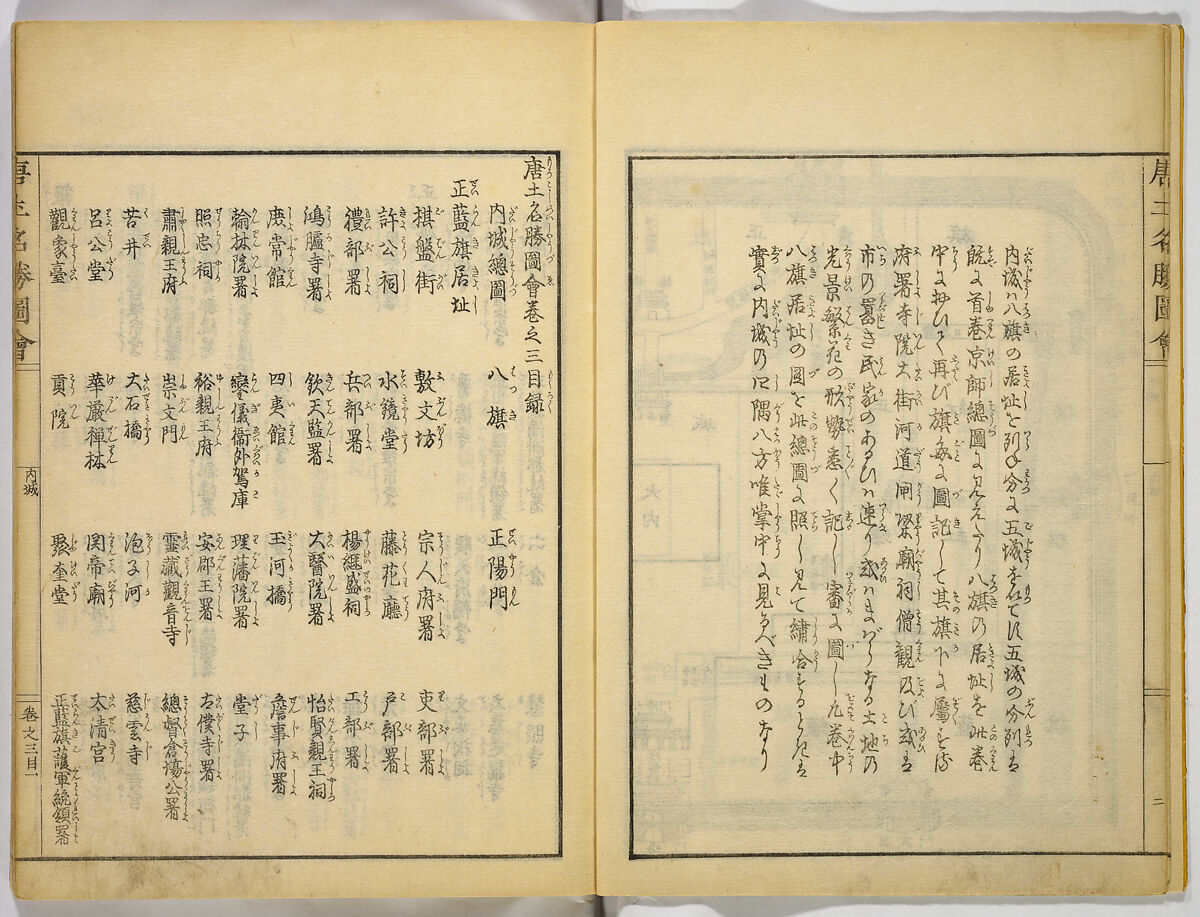 唐土名勝圖會
内城ハ八旗の居址を列ね分に五城を以てす五城の分列は
既に首巻京師總圖に見えたり八旗の居址を此巻
中に於ひて再び旗毎に圖記して其旗下に屬する
府署寺院大街河道閘梁廟祠僧觀及び或は
市の囂き民家のあるひハ連り或ハまばらなる土地の
光景繁花の形勢悉く記し審に圖し凡巻中
八旗居址の圖を此總圖に照し見て繍合するときは
實に内城の四隅八方唯掌中に見るべきものなり
二
唐土名勝圖會巻之三目録
内城總圖 八旗 正陽門
正藍旗居址
棋盤街 敷文坊 宗人府署 吏部署
許公祠 水鏡堂 藤花廳 戸部署
禮部署 兵部署 楊繼盛祠 工部署
鴻臚寺署 欽天監署 大醫院署 怡賢親王祠
庚常館 四夷館 玉河橋 詹事府署
翰林院署 鑾儀衞外駕庫 理藩院署 堂子
照忠祠 裕親王府 安郡王署 太僕寺署
肅親王府 崇文門 靈藏觀音寺 總督倉場公署
苦井 大石橋 泡子河 慈雲寺
呂公堂 華嚴禪林 関帝廟 太清宮
觀象臺 貢院 聚奎堂 正藍旗護軍統領署
唐土名勝圖會
内城
巻之三目一